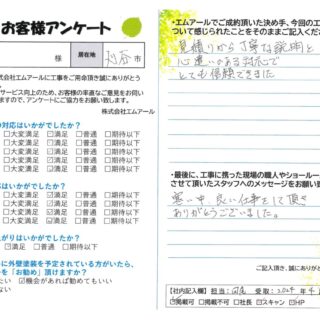 お客様アンケート
様 居住地 市
株式会社エムアールに工事をご用命頂き誠にありがとう
サービス向上のため、お客様の率直なご意見をお伺い
ますので、アンケートにご協力をお願い致します。
株式会社エムアール
の対応はいかがでしたか？
□大変満足 ☑満足 □普通 □期待以下
□大変満足 ☑満足 □普通 □期待以下
□大変満足 ☑満足 □普通 □期待以下
□大変満足 ☑満足 □普通 □期待以下
はいかがでしたか？
□大変満足 ☑満足 □普通 □期待以下
□大変満足 ☑満足 □普通 □期待以下
□大変満足 ☑満足 □普通 □期待以下
がりはいかがでしたか？
☑満足 □普通 □期待以下
に外壁塗装を予定されている方がいたら、
を「お勧め」頂けますか？
たい ☑機会があれば勧めたい
・エムアールでご成約頂いた決め手、今回の工
ついて感じられたことをそのままご記入くださ
見積りから丁寧な説明と
心遣いのある対応で
とても信頼できました
・最後に、工事に携った現場の職人やショールー
させて頂いたスタッフへのメッセージをお願い致
寒い中、良い仕事をして頂き
ありがとうございました。
ご記入頂き、誠にありがと
【社内記入欄】担当： 受取：2024 年 4 月
□掲載可 □掲載不可 □社長 ☑スキャン ☑HP